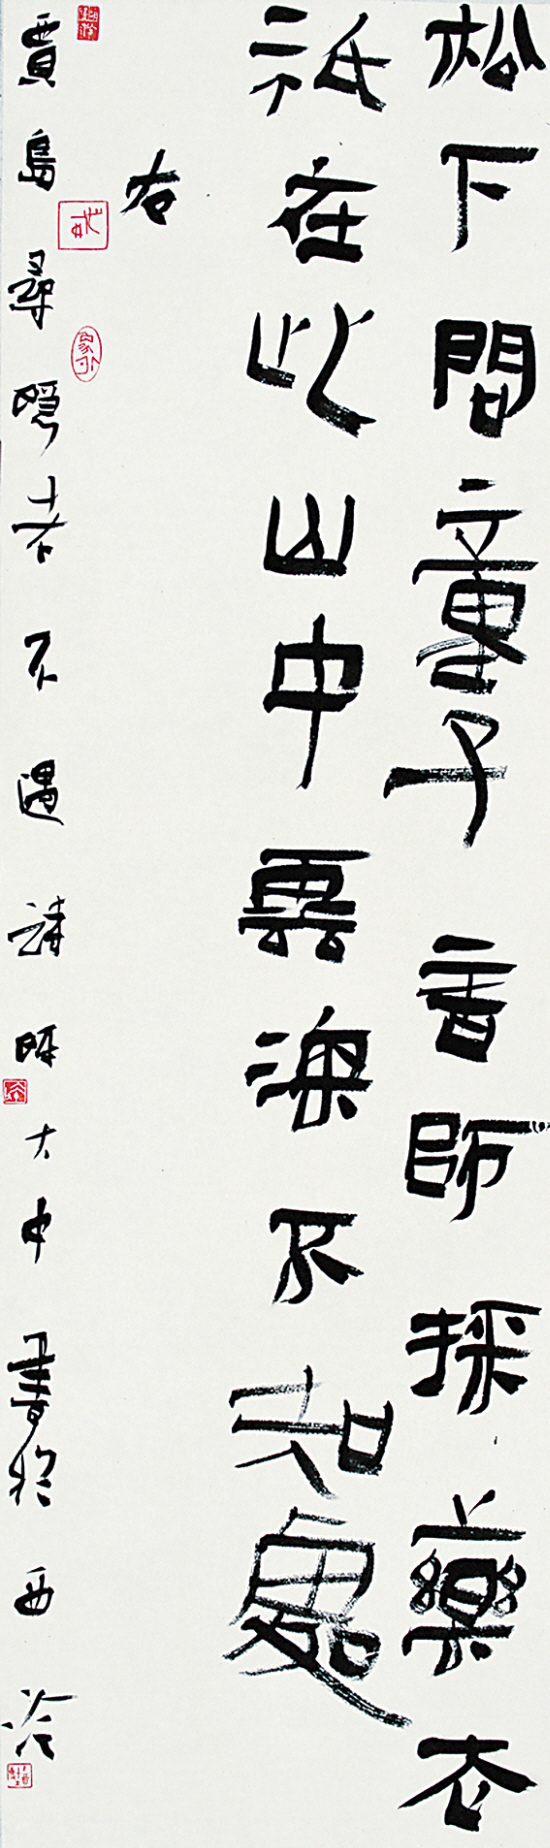 松下問童子言師採藥去
祇在此山中雲深不知處
右
賈島尋隱者不遇詩陳大中書於西泠